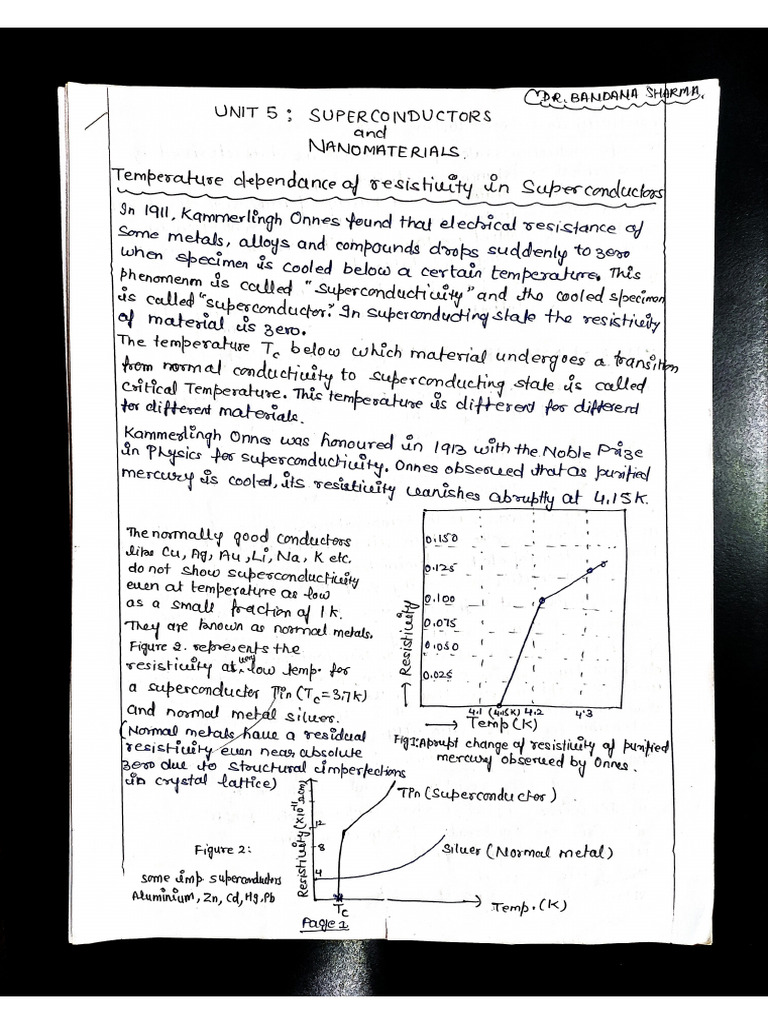 DR. BANDANA SHARMA.
UNIT 5 : SUPERCONDUCTORS
and
NANOMATERIALS.
Temperature dependance of resistivity in Superconductors
In 1911, Kammerlingh Onnes found that electrical resistance of
some metals, alloys and compounds drops suddenly to zero
when specimen is cooled below a certain temperature. This
phenomenm is called "superconductivity" and the cooled specimen
is called "superconductor". In superconducting state the resistivity
of material is zero.
The temperature Tc below which material undergoes a transition
from normal conductivity to superconducting state is called
Critical Temperature. This temperature is different for different
for different materials.
Kammerlingh Onnes was honoured in 1913 with the Noble Prize
in Physics for superconductivity. Onnes observed that as purified
mercury is cooled, its resistivity vanishes abruptly at 4.15K.
The normally good conductors
like Cu, Ag, Au, Li, Na, K etc.
do not show superconductivity
even at temperature as low
as a small fraction of 1k.
They are known as normal metals.
Figure 2. represents the
resistivity at very low temp. for
a superconductor Tin (Tc = 3.7k)
and normal metal silver.
(Normal metals have a residual
resistivity even near absolute
zero due to structural imperfections
in crystal lattice)
0.150
0.125
0.100
0.075
0.050
0.025
→ Resistivity
4.1 (4.15K) 4.2 4.3
→ Temp (K)
Fig 1: Aprupt change of resistivity of purified
mercury observed by Onnes.
Figure 2:
some imp superconductors
Aluminium, Zn, Cd, Hg, Pb
Resistivity (×10⁻¹¹ Ωcm)
12
8
4
Tin (Superconductor)
Silver (Normal metal)
Tc
Temp. (K)
Page 1